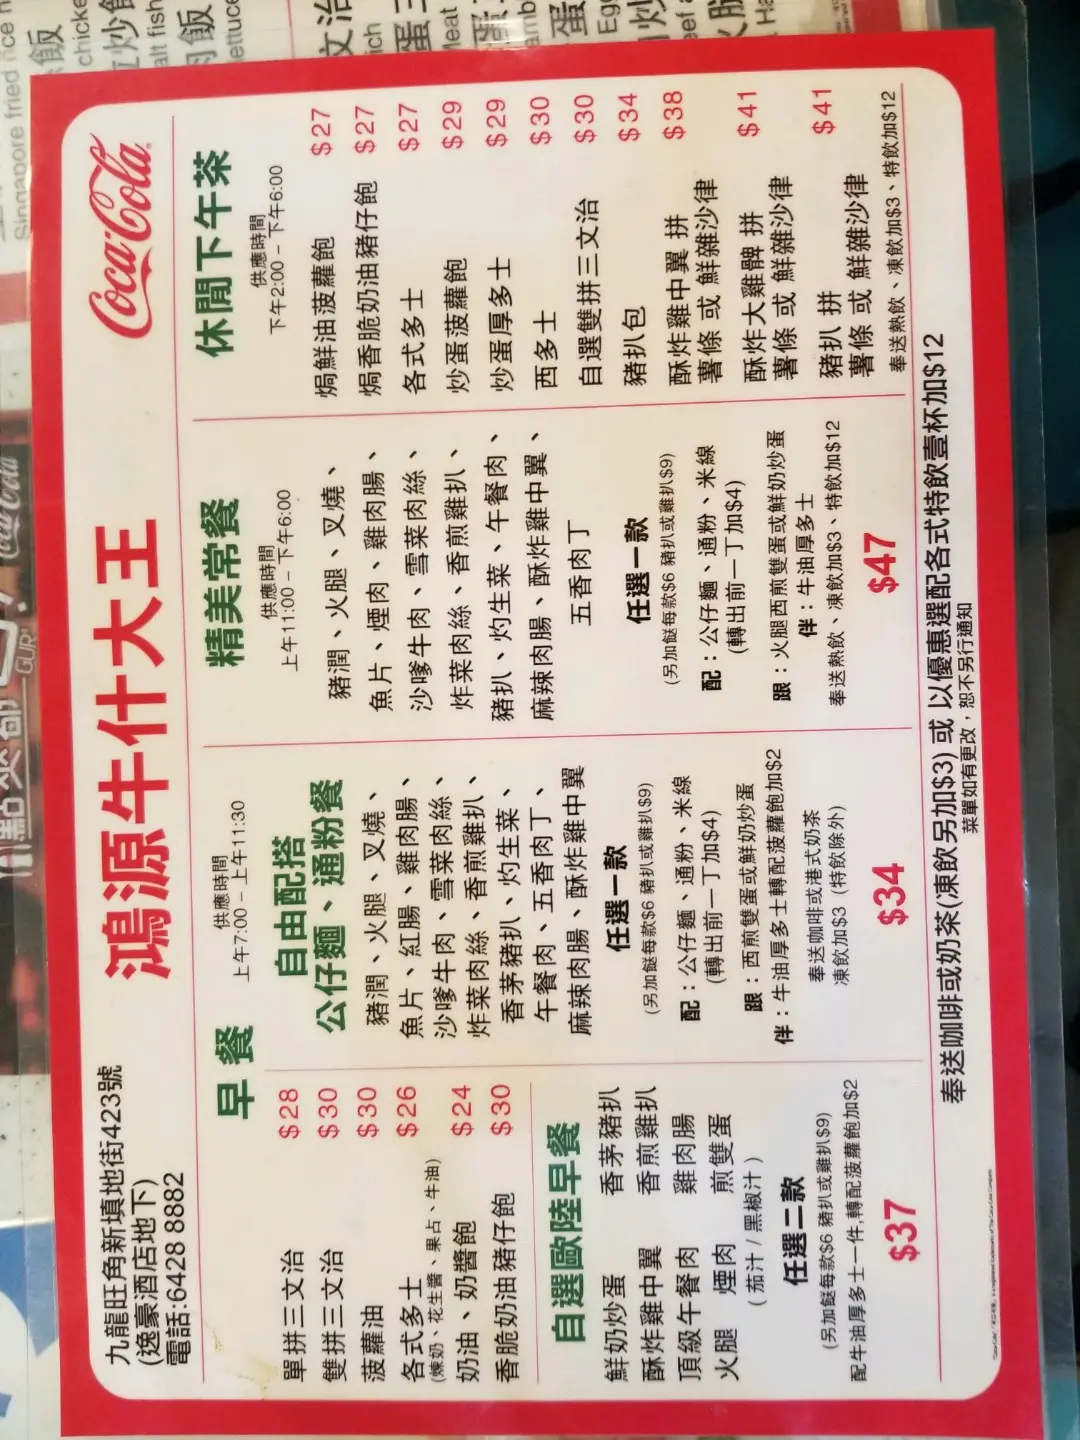 九龍旺角新填地街423號
(逸豪酒店地下)
電話:6428 8882
鴻源牛什大王
Coca-Cola
早餐
供應時間
上午7:00 – 上午11:30
單拼三文治 $28
雙拼三文治 $30
菠蘿油 $30
各式多士 $26
(煉奶、花生醬、果占、牛油)
奶油、奶醬飽 $24
香脆奶油豬仔飽 $30
自選歐陸早餐
鮮奶炒蛋 香茅豬扒
酥炸雞中翼 香煎雞扒
頂級午餐肉 雞肉腸
火腿 煙肉 煎雙蛋
( 茄汁 / 黑椒汁 )
任選二款
(另加餸每款$6 豬扒或雞扒$9)
配牛油厚多士一件,轉配菠蘿飽加$2
$37
自由配搭
公仔麵、通粉餐
豬潤、火腿、叉燒、
魚片、紅腸、雞肉腸、
沙嗲牛肉、雪菜肉絲、
炸菜肉絲、香煎雞扒、
香茅豬扒、灼生菜、
午餐肉、五香肉丁、
麻辣肉腸、酥炸雞中翼
任選一款
(另加餸每款$6 豬扒或雞扒$9)
配：公仔麵、通粉、米線
(轉出前一丁加$4)
跟：西煎雙蛋或鮮奶炒蛋
伴：牛油厚多士轉配菠蘿飽加$2
奉送咖啡或港式奶茶
凍飲加$3 (特飲除外)
$34
精美常餐
供應時間
上午11:00 – 下午6:00
豬潤、火腿、叉燒、
魚片、煙肉、雞肉腸、
沙嗲牛肉、雪菜肉絲、
炸菜肉絲、香煎雞扒、
豬扒、灼生菜、午餐肉、
麻辣肉腸、酥炸雞中翼、
五香肉丁
任選一款
(另加餸每款$6 豬扒或雞扒$9)
配：公仔麵、通粉、米線
(轉出前一丁加$4)
跟：火腿西煎雙蛋或鮮奶炒蛋
伴：牛油厚多士
奉送熱飲、凍飲加$3、特飲加$12
$47
休閒下午茶
供應時間
下午2:00 – 下午6:00
焗鮮油菠蘿飽 $27
焗香脆奶油豬仔飽 $27
各式多士 $27
炒蛋菠蘿飽 $29
炒蛋厚多士 $29
西多士 $30
自選雙拼三文治 $30
豬扒包 $34
酥炸雞中翼 拼 $38
薯條 或 鮮雜沙律
酥炸大雞髀 拼 $41
薯條 或 鮮雜沙律
豬扒 拼 $41
薯條 或 鮮雜沙律
奉送熱飲、凍飲加$3、特飲加$12
奉送咖啡或奶茶(凍飲另加$3) 或 以優惠選配各式特飲壹杯加$12
菜單如有更改，恕不另行通知
Singapore fried rice